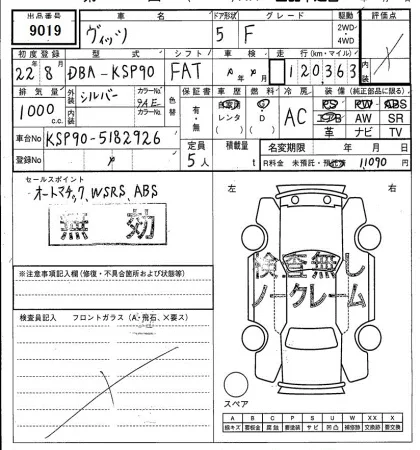 出品番号 車名 ドア形状 グレード 駆動 評価点
9019 ヴィッツ 5 F 2WD 4WD
初度登録 型式 シフト 車検 走行(km・マイル) 内
22年8月 DBA-KSP90 FAT 年 月 120363
排気量 外装 シルバー カラーNo. 9AE 色替 保証書 車歴 燃料 冷房 装備(純正部品に限る)
1000 c.c. 内装 カラーNo. 有・無 自家用 レンタ G D AC PS PW ABS
エアB AW SR
革 ナビ TV
車台No KSP90-5182926
定員 積載量 名変期限 年 月 日
登録No 5人 t R料金 未預託・預託済 11,090円
セールスポイント
オートマチック、WSRS、ABS
無効
左 右
検査無し
ノークレーム
※注意事項記入欄(修復・不具合箇所および状態等)
検査員記入 フロントガラス(A・飛石、×要ス)
スペア
A B C P S U W X XX
線キズ 要板金 腐蝕 要塗装 サビ 凹凸 補修跡 要交換 交換済